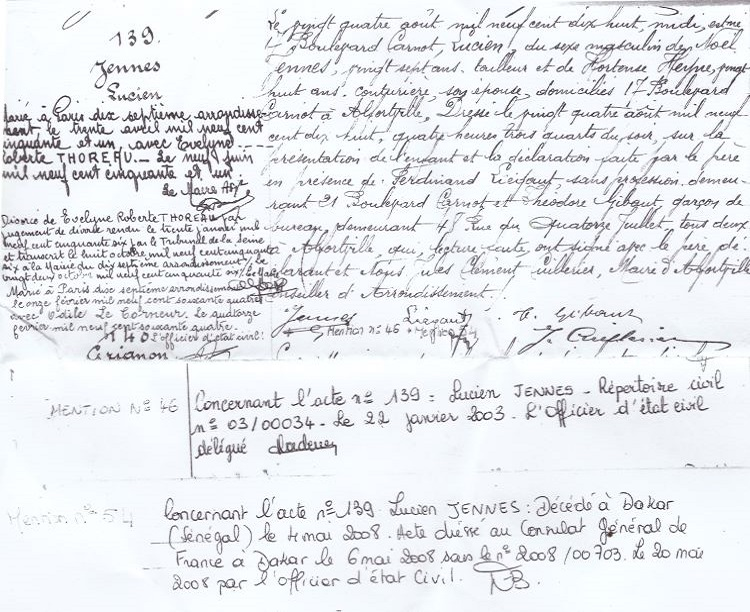 139.
Jennes
Lucien
Marié à Paris dix septième arrondisse-
ment, le trente avril mil neuf cent
cinquante et un, avec Evelyne
Roberte THOREAU._ Le neuf juin
mil neuf cent cinquante et un
Le Maire
Divorcé de Evelyne Roberte THOREAU par
jugement de divorce rendu le trente janvier mil
neuf cent cinquante six par le Tribunal de la Seine
et transcrit le huit octobre mil neuf cent cinquante
six à la Mairie du dix septième arrondissement. Le
vingt deux octobre mil neuf cent cinquante six.
Marié à Paris dix septième arrondissement
le onze février mil neuf cent soixante quatre
avec Odile Le Corneur. Le quatorze
février mil neuf cent soixante quatre.
L'officier d'état civil:
n 40
Grignon
Le vingt quatre août mil neuf cent dix huit, midi, est né
17 Boulevard Carnot, Lucien, du sexe masculin de Noël
Jennes, vingt sept ans, tailleur et de Hortense Heyne, vingt
huit ans, couturière, son épouse, domiciliés 17 Boulevard
Carnot à Alfortville. Dressé le vingt quatre août mil neuf
cent dix huit, quatre heures trois quarts du soir, sur la
présentation de l'enfant et la déclaration faite par le père
en présence de Ferdinand sans profession, demeu-
rant 31 Boulevard Carnot et Théodore Gibaut, garçon de
bureau, demeurant 47 Rue du Quatorze Juillet, tous deux
à Alfortville, qui, lecture faite, ont signé avec le père dé-
clarant et Nous, Jules Clément Cuillerier, Maire d'Alfortville
Conseiller d'Arrondissement.
Jennes T. Gibaut
Mention n° 46 Mention 54
J. Cuillerier
MENTION N° 46
Concernant l'acte n° 139 : Lucien JENNES - Répertoire civil
n° 03/00034. Le 22 janvier 2003. L'Officier d'état civil
délégué
Mention n° 54
Concernant l'acte n° 139. Lucien JENNES : Décédé à Dakar
(Sénégal) le 4 mai 2008. Acte dressé au Consulat Général de
France à Dakar le 6 mai 2008 sous le n° 2008/00703. Le 20 mai
2008 par l'officier d'état Civil. NB.